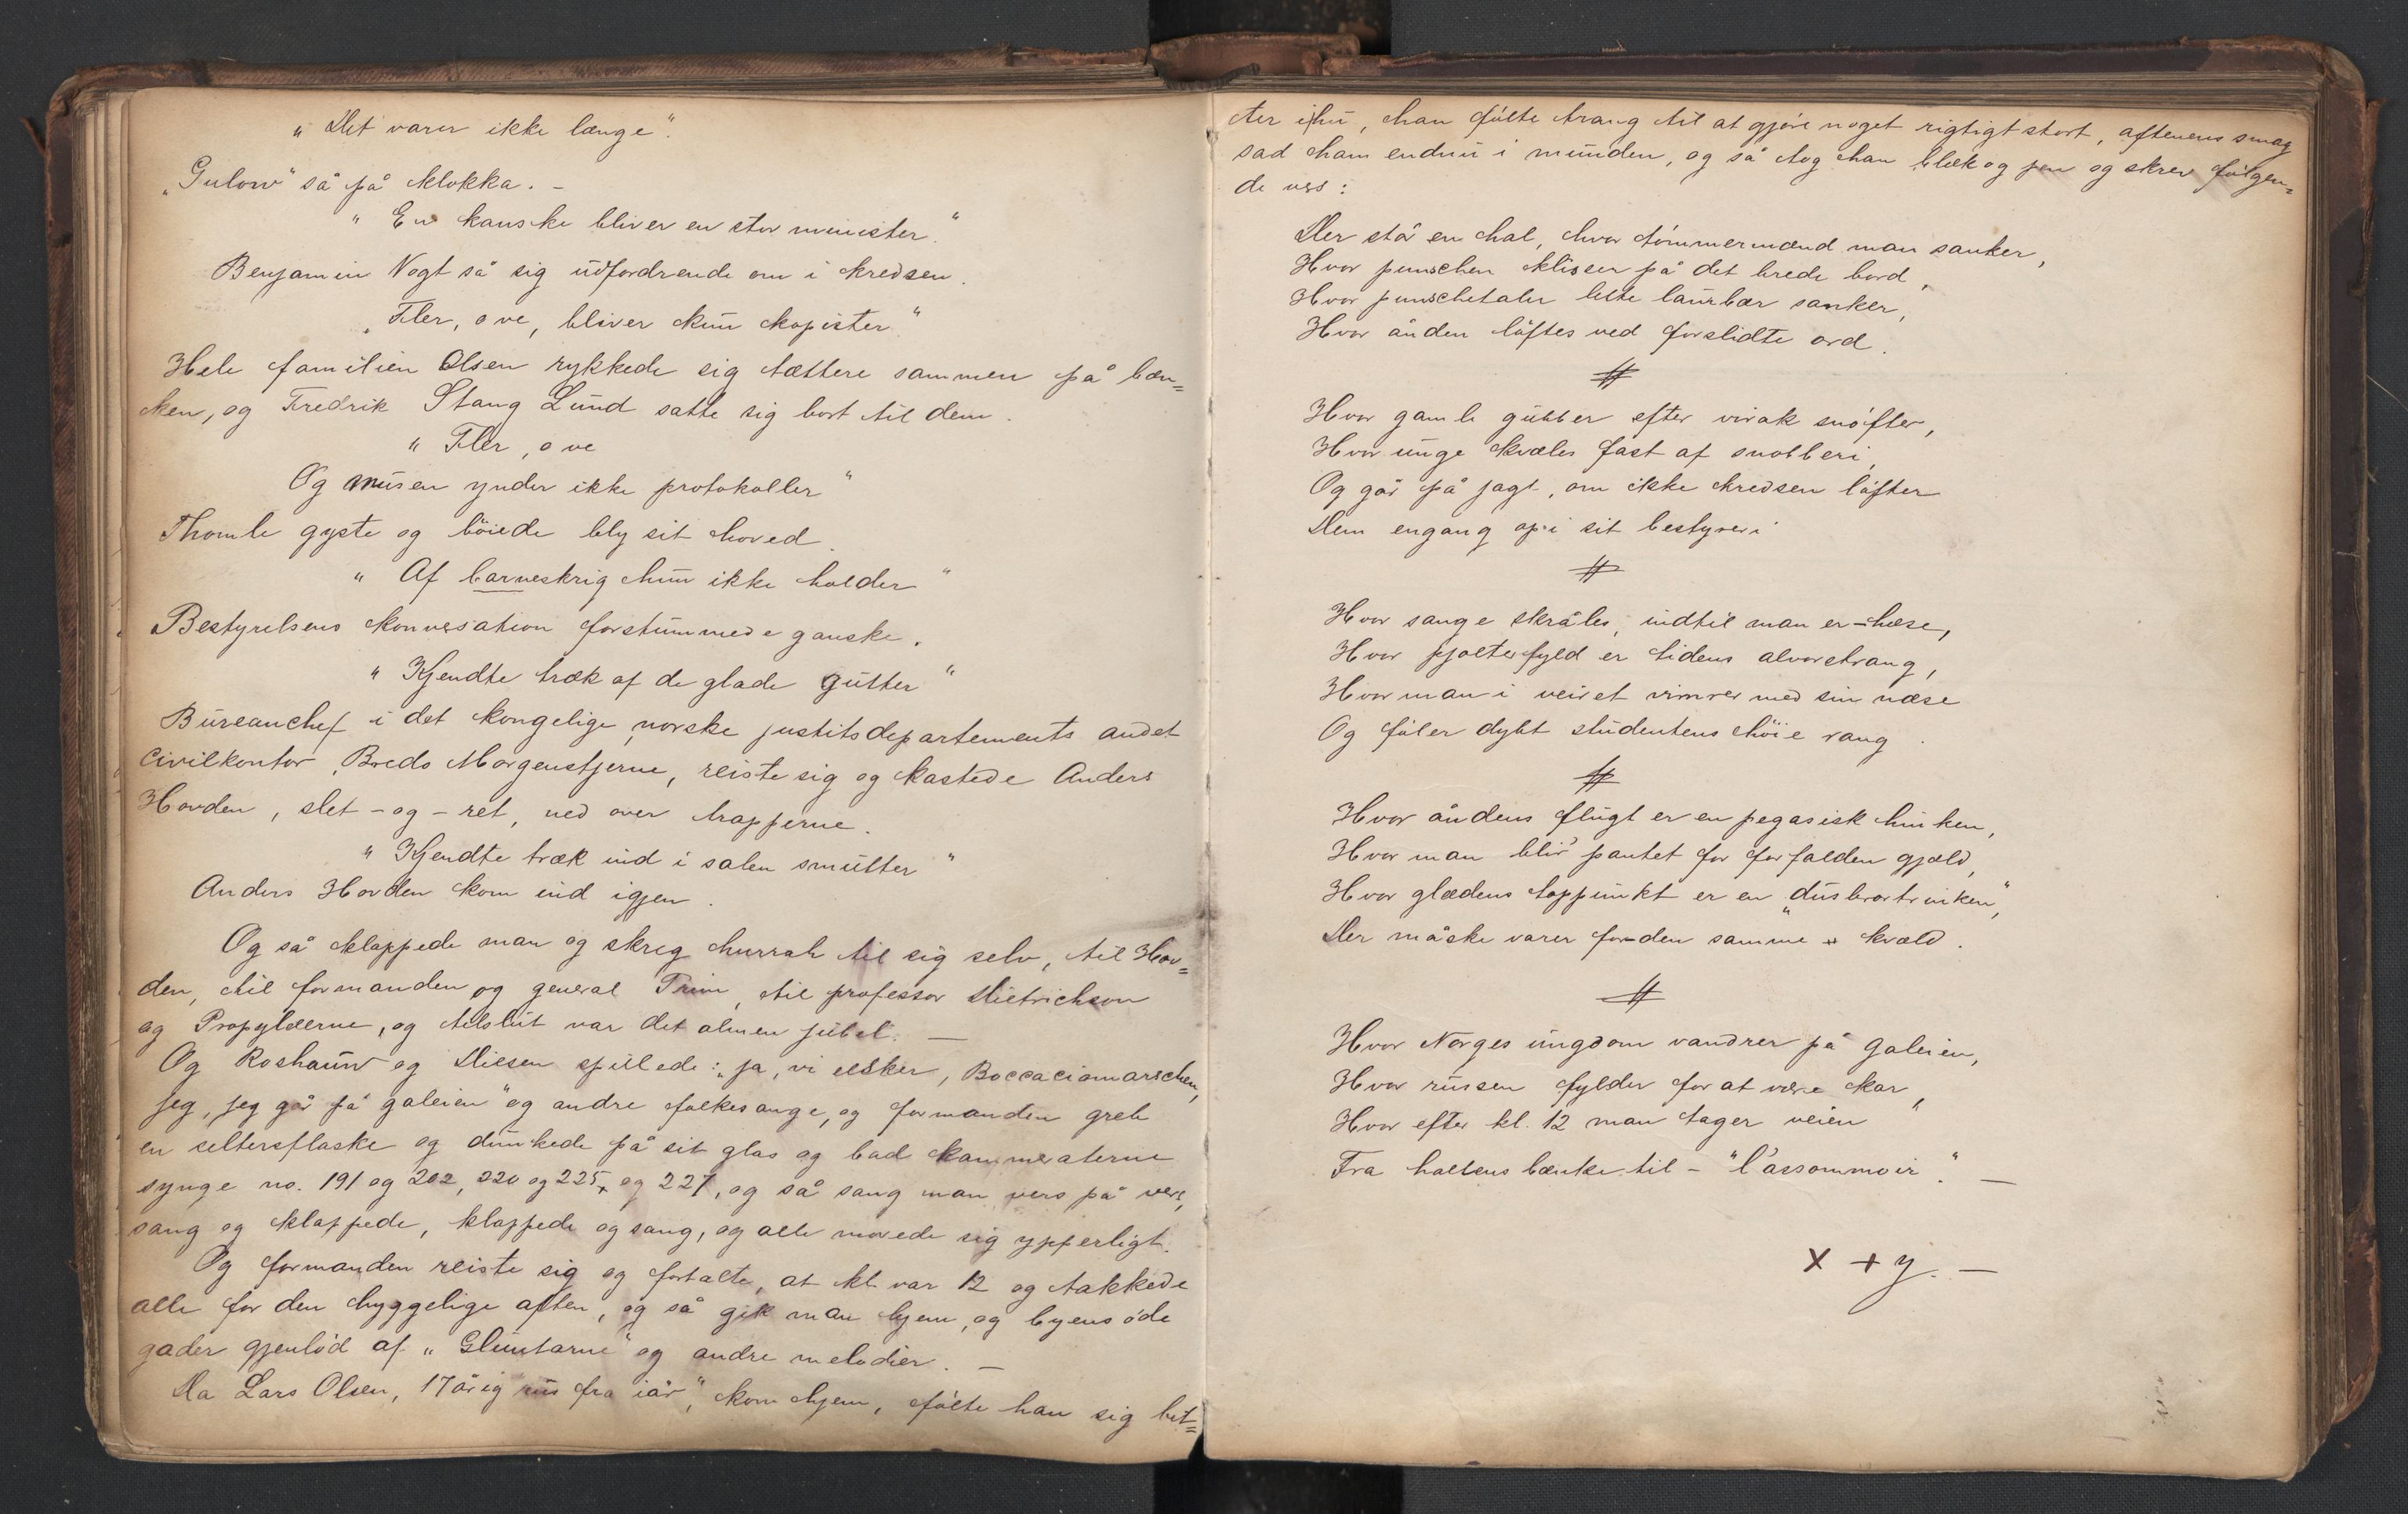 „Det varer ikke længe“.
„Gulow“ så på klokka. –
„En kanske bliver en stor minister.“
Benjamin Vogt så sig udfordrende om i kredsen.
„Fler, o ve, bliver kun kopister“
Hele familien Olsen rykkede sig tættere sammen på bæn=
ken, og Fredrik Stang Lund satte sig bort til dem.
„Fler, o ve
Og musen ynder ikke protokoller“
Thomle gyste og böiede bly sit hoved.
„Af barneskrig hun ikke holder“
Bestyrelsens konversation forstummede ganske.
„Kjendte træk af de glade gutter“
Bureauchef i det kongelige norske justitsdepartements andet
civilkontor, Bredo Morgenstjerne, reiste sig og kastede Anders
Hovden, slet-og-ret, ned over trapperne.
„Kjendte træk ind i salen smutter“
Anders Hovden kom ind igjen.
Og så klappede man og skreg hurrah til sig selv, til Hov=
den, til formanden og general Prim, til professor Dietrichson
og Propylæerne, og tilslut var det almen jubel. —
Og Roshauw og Diesen spillede: „Ja, vi elsker, Boccaciomarschen,
Jeg, jeg går på galeien“ og andre folkesange, og formanden greb
en seltersflaske og dunkede på sit glas og bad kammeraterne
synge no. 191 og 202, 220 og 225, og 227, og så sang man vers på vers,
sang og klappede, klappede og sang, og alle morede sig ypperligt.
Og formanden reiste sig og fortalte, at kl. var 12 og takkede
alle for den hyggelige aften, og så gik man hjem, og byens öde
gader gjenlöd af „Gluntarne“ og andre melodier. —
Da Lars Olsen, 17årig rus fra iår“, kom hjem, fölte han sig bet=
ter ihu, han fölte trang til at gjöre noget rigtigt stort, aftenens smag
sad ham endnu i munden, og så tog han blæk og pen og skrev fölgen=
de vers:
Der stå en hal, hvor tömmermænd man sanker,
Hvor punschen klisser på det brede bord,
Hvor punschetaler lette laurbær sanker,
Hvor ånden löftes ved forslidte ord.
#
Hvor gamle gubber efter virak snöfter,
Hvor unge kvæles fast af snobberi,
Og går på jagt, om ikke kredsen löfter
Dem engang op i sit bestyreri
#
Hvor sange skråles, indtil man er – hæse,
Hvor pjolterfyld er tidens alvorstrang,
Hvor man i veiret vimrer med sin næse
Og föler dybt studentens höie rang.
#
Hvor åndens flugt er en pegasisk hinken,
Hvor man blir pantet for forfalden gjæld,
Hvor glædens toppunkt er en „dusbrortrinken“,
Der måske varer for den samme kvæld.
#
Hvor Norges ungdom vandrer på galeien,
Hvor russen fylder for at være kar,
Hvor efter kl. 12 man tager veien
Fra hallens bænke til – "l'assommoir". —
x + y. —